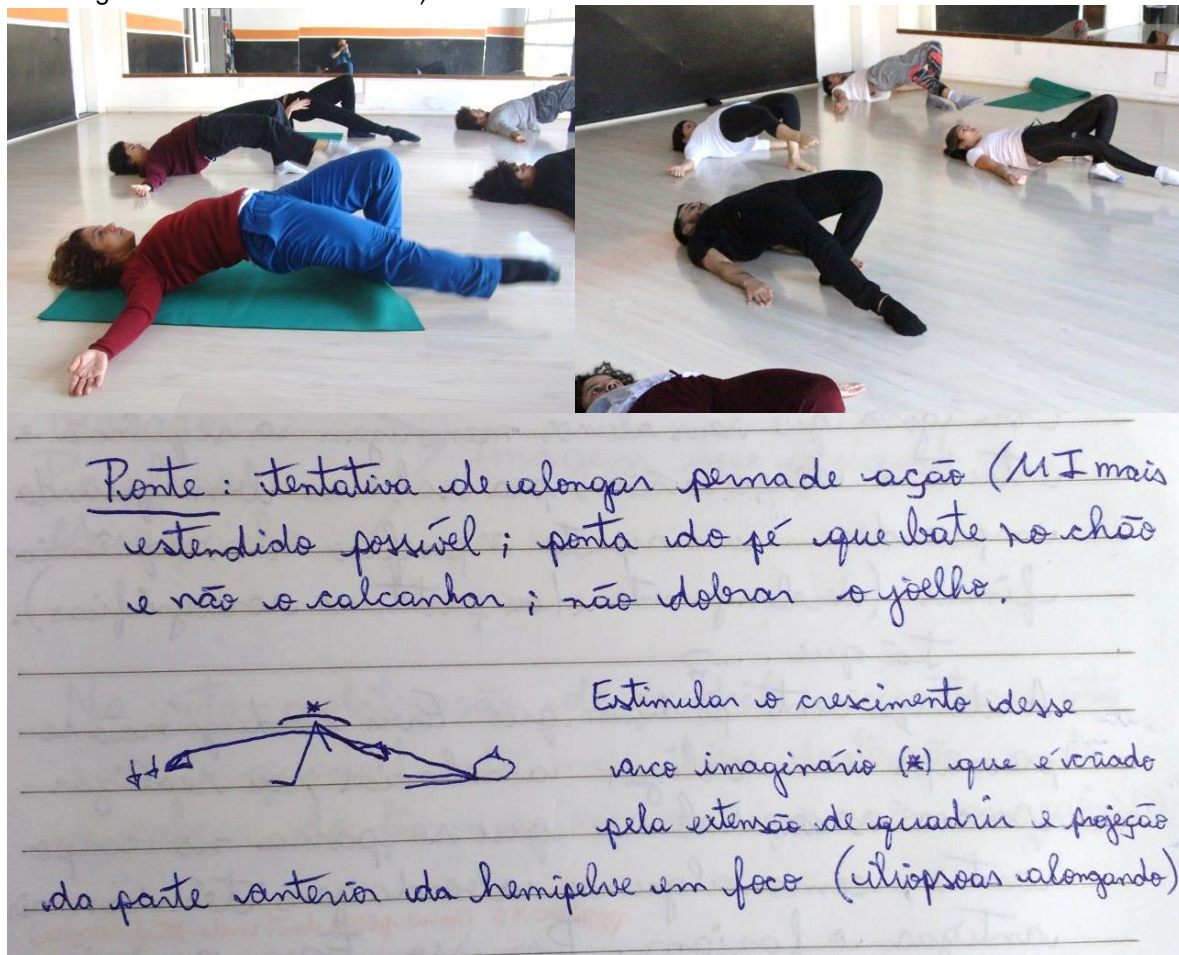 Ponte: tentativa de alongar perna de ação (MI mais
estendido possível; ponta do pé que bate no chão
e não o calcanhar; não dobrar o joelho.
Estimular o crescimento desse
arco imaginário (*) que é criado
pela extensão de quadril e projeção
da parte anterior da hemipelve em foco (iliopsoas alongando)